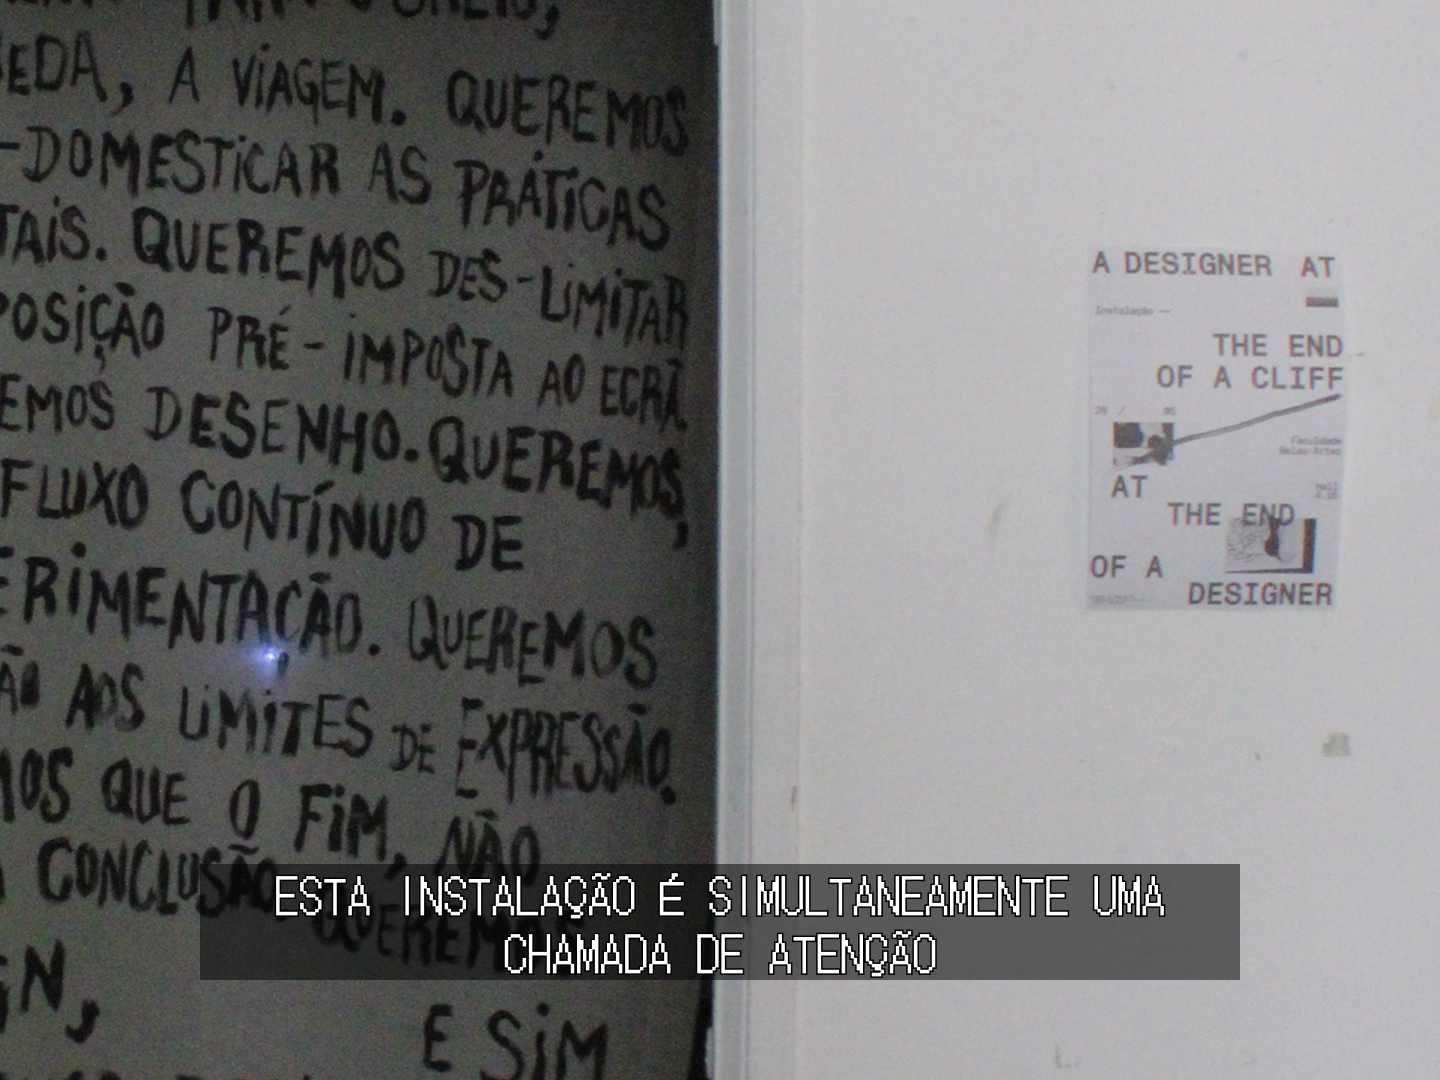 , A VIAGEM. QUEREMOS
-DOMESTICAR AS PRÁTICAS
TAIS. QUEREMOS DES-LIMITAR
POSIÇÃO PRÉ-IMPOSTA AO ECRÃ.
EMOS DESENHO. QUEREMOS,
FLUXO CONTÍNUO DE
ERIMENTAÇÃO. QUEREMOS
ÃO AOS LIMITES DE EXPRESSÃO.
MOS QUE O FIM, NÃO
A CONCLUSÃO. QUEREMOS
E SIM
A DESIGNER AT
Instalação —
THE END
OF A CLIFF
Faculdade
Belas-Artes
AT
THE END
OF A
DESIGNER
ESTA INSTALAÇÃO É SIMULTANEAMENTE UMA
CHAMADA DE ATENÇÃO